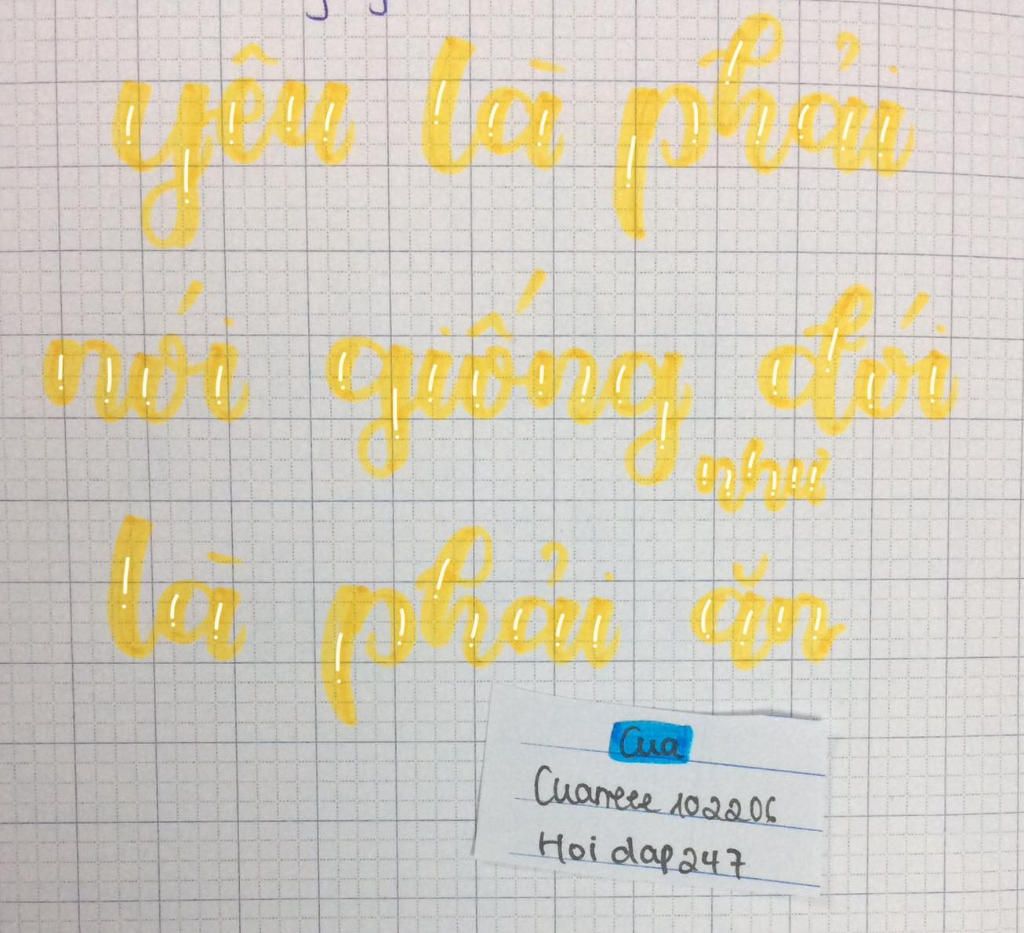 yêu là phải
nói giống đói
như
là phải ăn
Cua
102206
Hoi dap 247